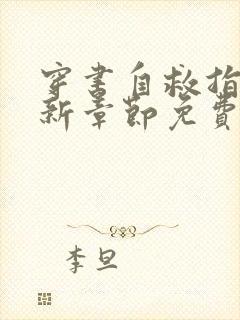 穿书自救指
新章節免費
李旦